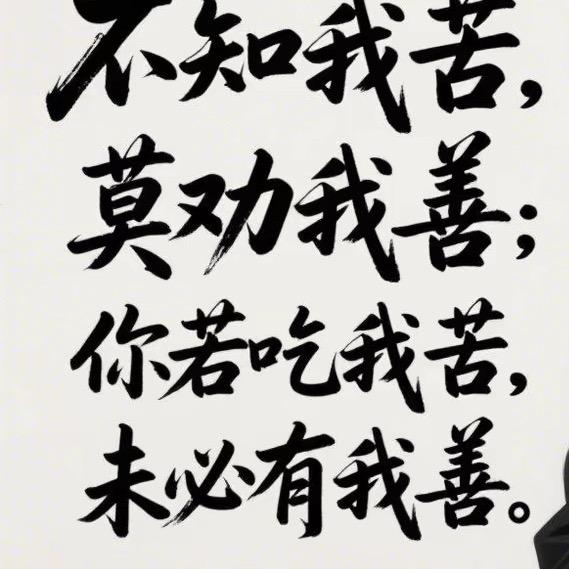 不知我苦，
莫劝我善；
你若吃我苦，
未必有我善。